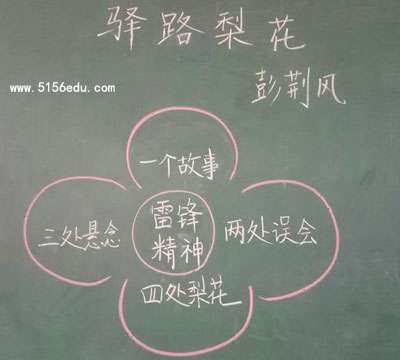 驿路梨花
www.5156edu.com
彭荆风
一个故事
三处悬念
雷锋
精神
两处误会
四处梨花